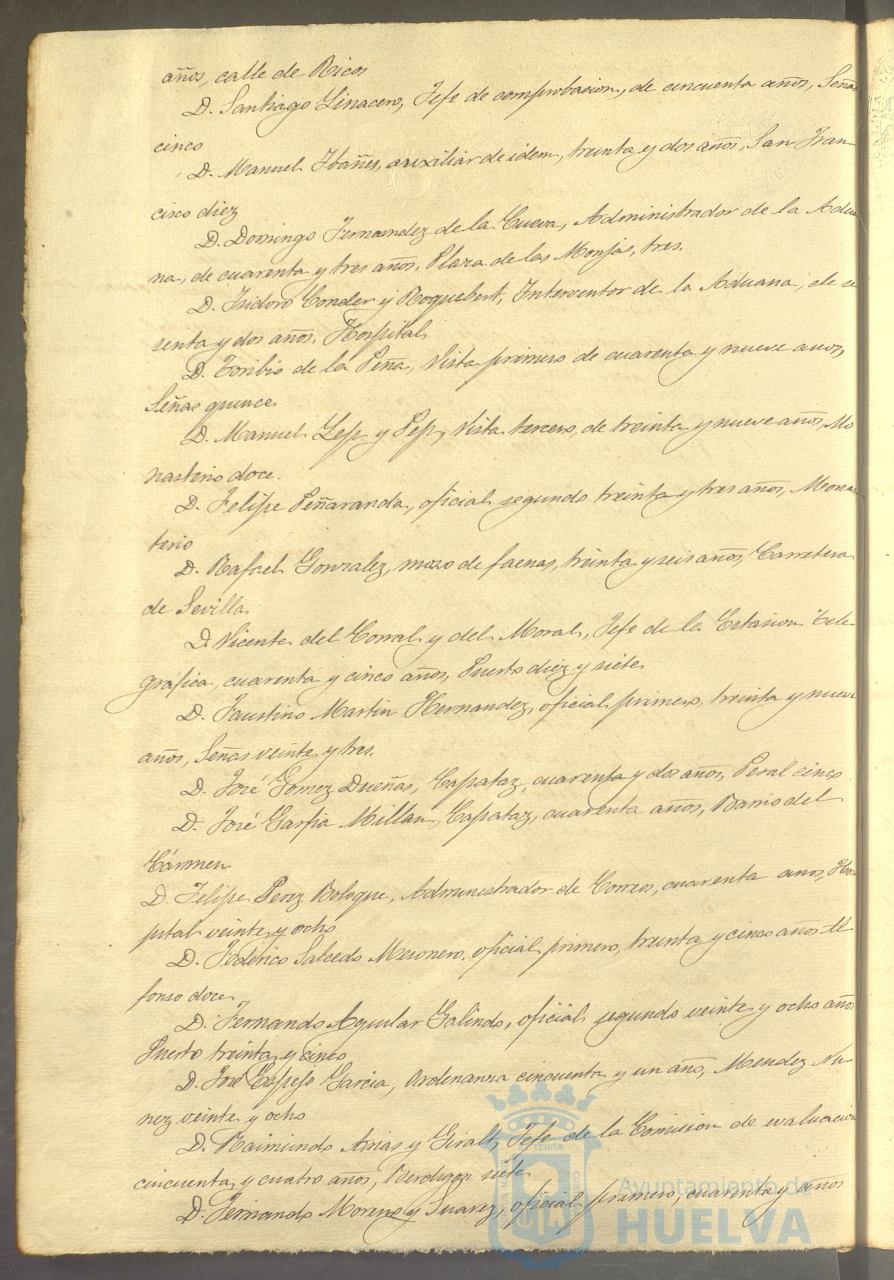 años, calle de Ricos
D. Santiago Linacero, Jefe de comprobacion, de cincuenta años, Señas
cinco
D. Manuel Ibañes, auxiliar de idem, treinta y dos años, San Fran
cisco diez
D. Domingo Fernandez de la Cueva, Administrador de la Adua
na, de cuarenta y tres años, Plaza de las Monjas, tres.
D. Isidoro Conder y Roquebert, Interventor de la Aduana, de se
senta y dos años, Hospital
D. Toribio de la Peña, Vista primero de cuarenta y nueve años,
Señas quince
D. Manuel y Vista tercero, de treinta y nueve años, Mo
nasterio doce.
D. Felipe Peñaranda, oficial segundo treinta y tres años, Monas
terio
D. Rafael Gonzalez, mozo de faenas, treinta y seis años, Carretera
de Sevilla
D. Vicente del Corral y del Moral, Jefe de la Estasion Tele
gráfica, cuarenta y cinco años, Puerto diez y siete
D. Faustino Martin Hernandez, oficial primero, treinta y nueve
años, Señas veinte y tres.
D. José Gomez Dueñas, Capataz, cuarenta y dos años, Peral cinco
D. José Garfia Millan, Capataz, cuarenta años, Barrio del
Cármen
D. Felipe Perez Bologue, Administrador de Correos, cuarenta años, Hos
pital veinte y ocho
D. Federico Salcedo Mesonero, oficial primero, treinta y cinco años
fonso doce
D. Fernando Aguilar Galindo, oficial segundo veinte y ocho años
Puerto treinta y cinco
D. José Espejo Garcia, Ordenanza cincuenta y un año, Mendez Nu
nez veinte y ocho
D. Raimundo Arias y Giralt, Jefe de la Comision de evaluacion
cincuenta y cuatro años, Berdigon siete
D. Fernando Moreno y Suarez, oficial primero, cuarenta y años
Ayuntamiento de
HUELVA